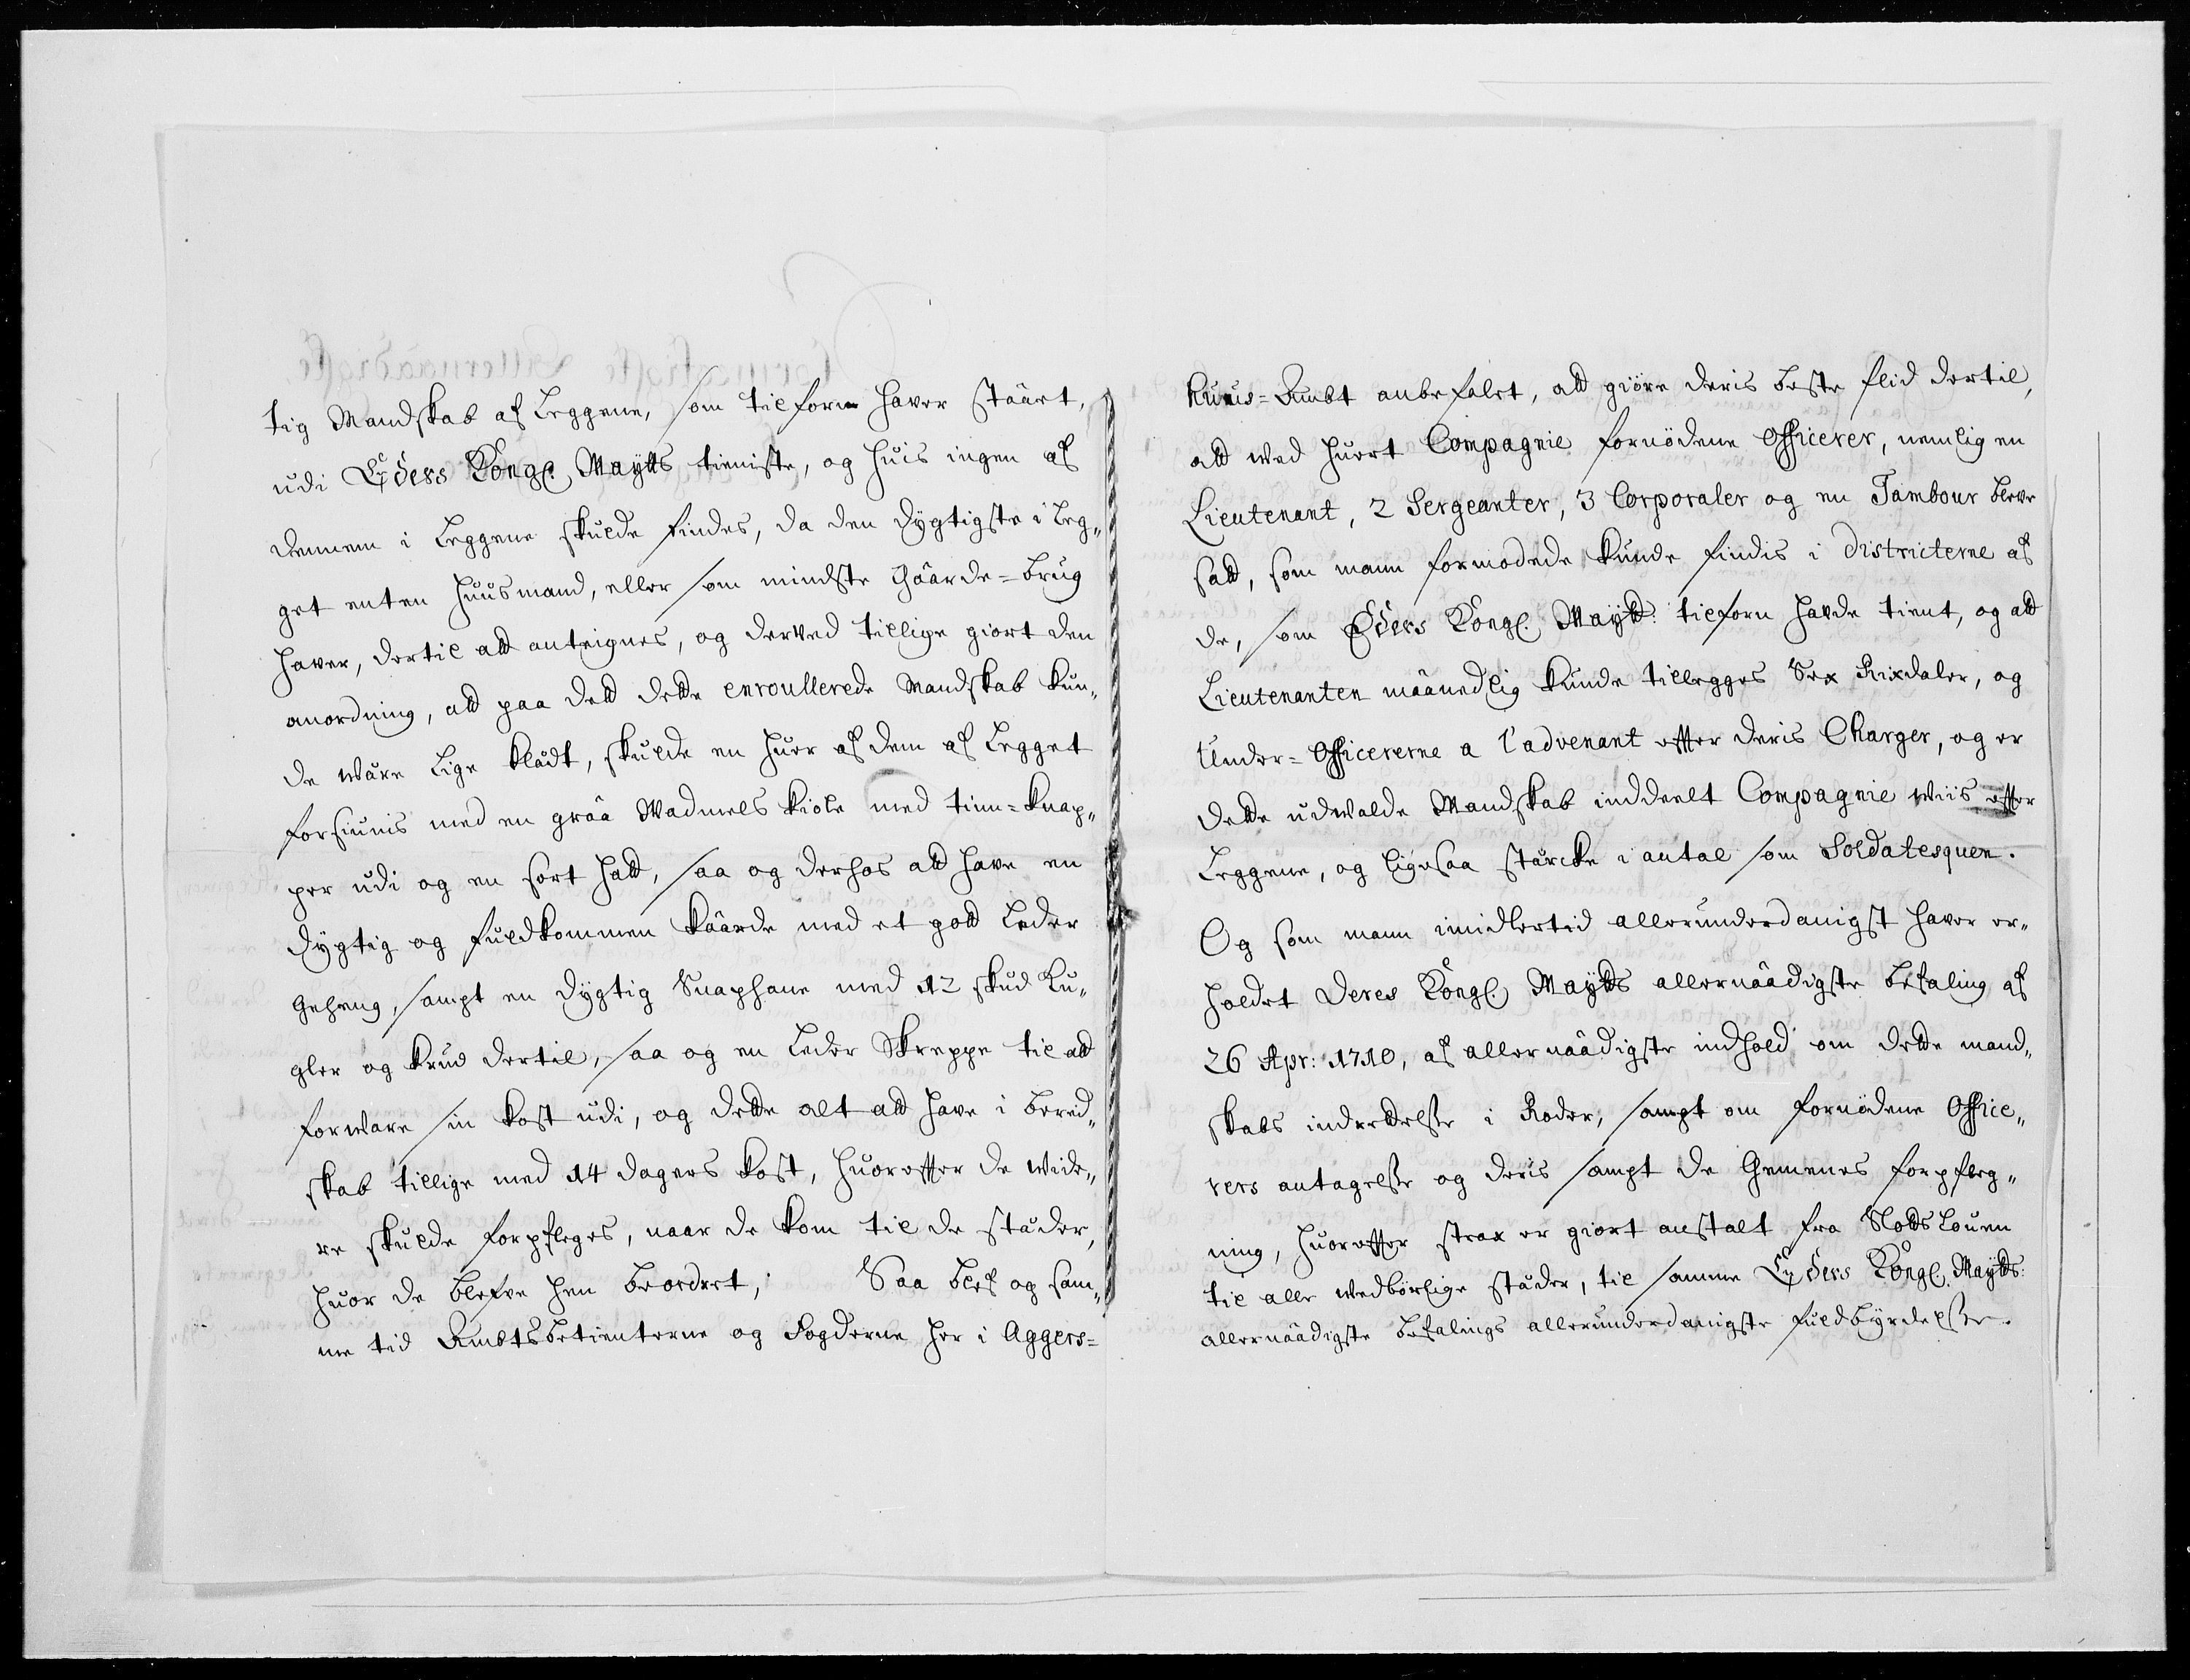 tig Mandskab af Leggene, som tilforne haver stäaet,
udi Eders Kongl. Maÿtts tieniste, og huis ingen af
dennem i Leggene skulde findes, da den dÿgtigste i Leg„
get enten Huusmand, eller som mindste Gaarde=brug
haver, dertil att anteignes, og derved tillige giort den
anordning, att paa dett dette enroullerede Mandskab kun„
de være lige klædt, skulde en huer af dem af Legget
forsiunis med en graa Wadmels kiole med tinn=knap„
per udi og en sort hatt, saa og derhos att have en
dÿgtig og fuldkommen kaarde med et gott Leder
Geheng, sampt en dÿgtig Snaphane med 12 skud Ku„
gler og krud dertil, saa og en Leder Skreppe til att
forware sin kost udi, og dette alt att have i bered„
skab tillige med 14 dagers kost, huorefter de wide„
re skulde forpfleges, naar de kom til de stæder,
huor de blefve hen beordret; Saa blef og sam„
me tid Ambtsbetienterne og Fogderne her i Aggers=
huuus=Ambt anbefalet, att giöre deris beste flid dertil,
att wed huert Compagnie fornödene Officerer, nemlig en
Lieutenant, 2 Sergeanter, 3 Corporaler og en Tambour bleve
satt, som mann formodede kunde findis i Districterne af
de, som Eders Kongl. Maÿtt: tilforn havde tient, og att
Lieutenanten maanedlig kunde tillegges Sex Rixdaler, og
Under=Officererne a l'advenant efter deris Charger, og er
dette udwalde Mandskab inddeelt Compagnie wiis efter
Leggene, og ligesaa stærcke i antal som Soldatesquen.
Og som mann imidlertid allerunderdanigst haver er„
holdet Deres Kongl. Maÿtts allernaadigste befaling af
26 Apr: 1710, af allernaadigste indhold om dette mand„
skabs inddeelelse i Roder, sampt om fornödene Office„
rers antagelse og deris sampt de Gemenes forpfleg„
ning, huorefter strax er giort anstalt fra Slotts Louen
til alle wedbörlige stæder, til samme Eders Kongl. Maÿtts:
allernaadigste befalings allerunderdanigste fuldbÿrdelse.